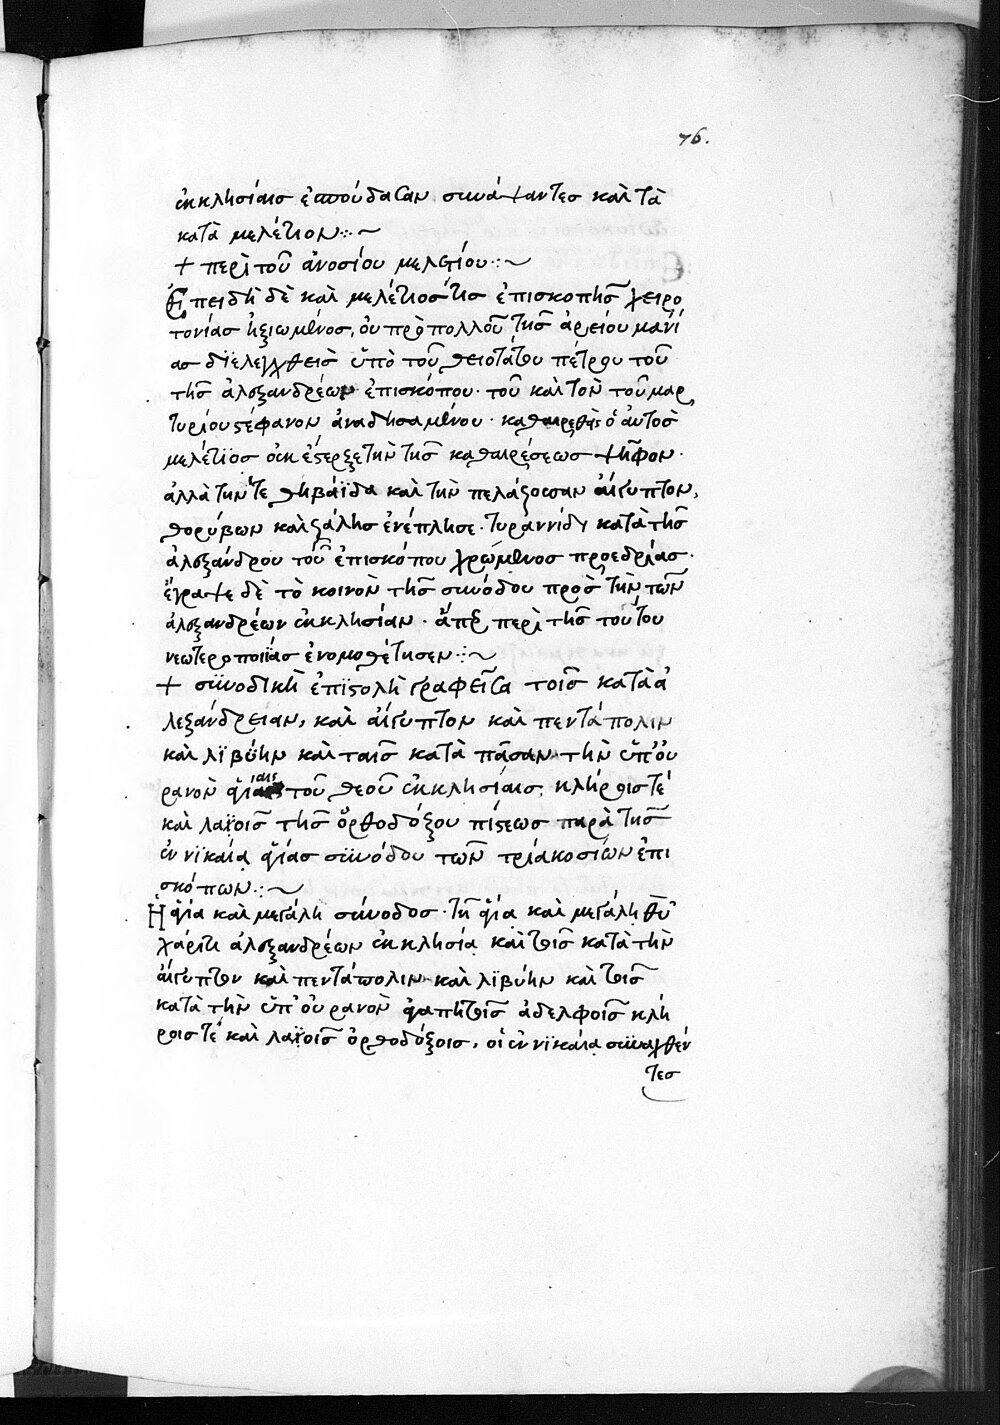 76.
ἐκκλησίαις ἐσπούδασαν συνάψαντες καὶ τὰ
κατὰ μελέτιον:~
+ περὶ τοῦ ἀνοσίου μελετίου:~
Ἐπειδὴ δὲ καὶ μελέτιός τις ἐπισκοπῆς χειρο
τονίας ἠξιωμένος, οὐ πρὸ πολλοῦ τῆς ἀρείου μανί
ας διελεγχθεὶς ὑπὸ τοῦ θειοτάτου πέτρου τοῦ
τῆς ἀλεξανδρέων ἐπισκόπου· τοῦ καὶ τὸν τοῦ μαρ
τυρίου στέφανον ἀναδησαμένου· καθαιρεθεὶς ὁ αὐτὸς
μελέτιος οὐκ ἔστερξε τὴν τῆς καθαιρέσεως ψῆφον·
ἀλλὰ τήν τε θηβαΐδα καὶ τὴν πελάζουσαν αἴγυπτον,
θορύβων καὶ ζάλης ἐνέπλησε· τυραννίδι κατὰ τῆς
ἀλεξάνδρου τοῦ ἐπισκόπου χρώμενος προεδρίας·
ἔγραψε δὲ τὸ κοινὸν τῆς συνόδου πρὸς τὴν τῶν
ἀλεξανδρέων ἐκκλησίαν· ἅπερ περὶ τῆς τούτου
νεωτεροποιΐας ἐνομοθέτησεν:~
+ συνοδικὴ ἐπιστολὴ γραφεῖσα τοῖς κατὰ ἀ
λεξάνδρειαν, καὶ αἴγυπτον καὶ πεντάπολιν
καὶ λιβύην καὶ ταῖς κατὰ πᾶσαν τὴν ὑπ' οὐ
ρανὸν ἁγίαις τοῦ θεοῦ ἐκκλησίαις, κλήροις τέ
καὶ λαϊοῖς τῆς ὀρθοδόξου πίστεως παρὰ τῆς
ἐν νικαία ἁγίας συνόδου τῶν τριακοσίων ἐπι
σκόπων:~
Ἡ ἁγία καὶ μεγάλη σύνοδος· τῇ ἁγία καὶ μεγάλη θῦ
χάριτι ἀλεξανδρέων ἐκκλησία καὶ τοῖς κατὰ τὴν
αἴγυπτον καὶ πεντάπολιν καὶ λιβύην καὶ τοῖς
κατὰ τὴν ὑπ' οὐρανὸν ἀγαπητοῖς ἀδελφοῖς κλή
ροις τέ καὶ λαϊοῖς ὀρθοδόξοις, οἱ ἐν νικαία συναχθέν
τες